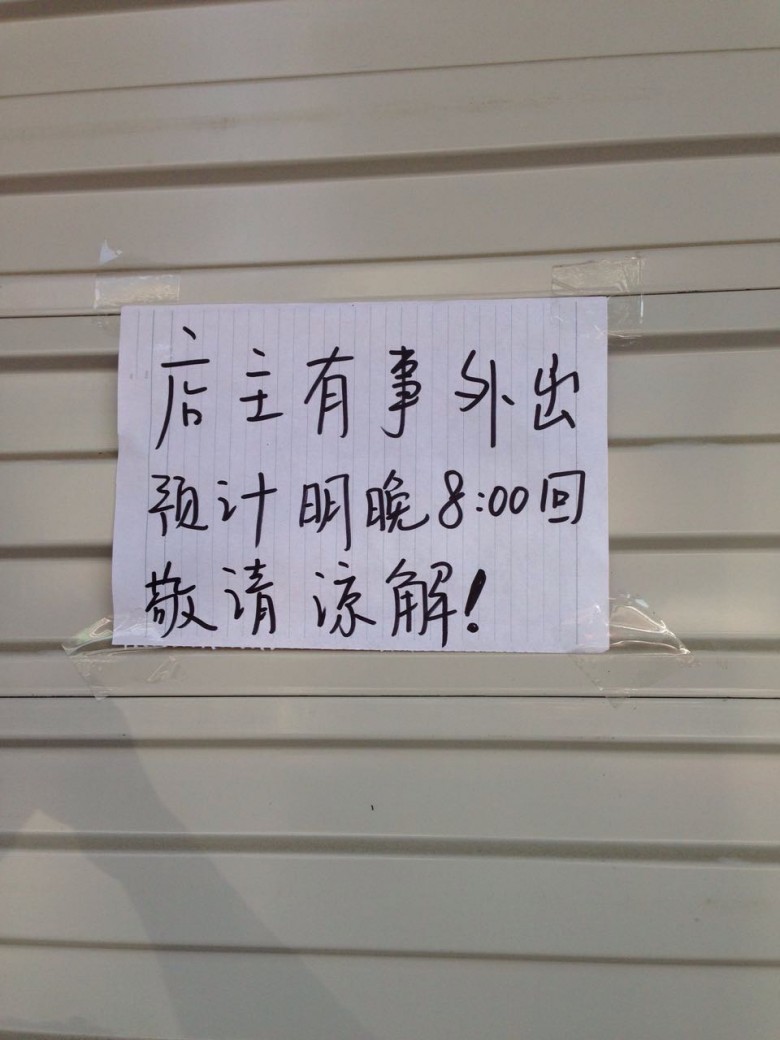 店主有事外出
预计明晚8:00回
敬请凉解!